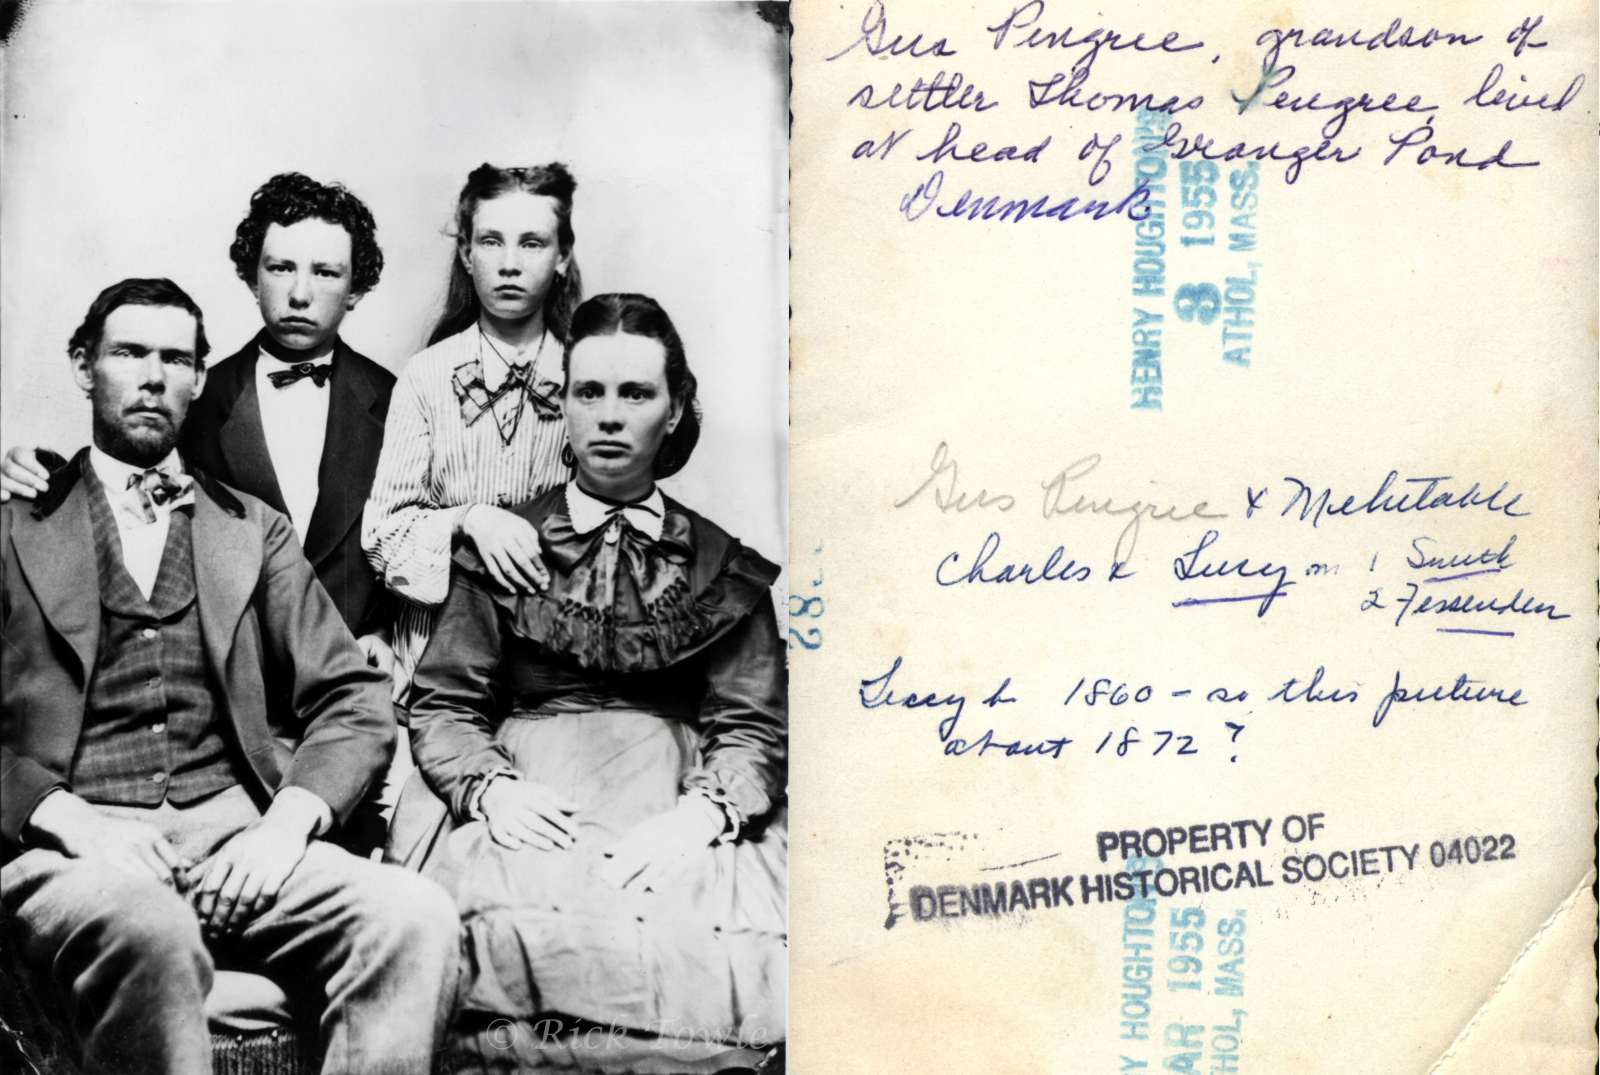 Gus Pingree, grandson of
settler Thomas Pingree, lived
at head of Granger Pond
Denmark
HENRY HOUGHTON'S
8 1955
ATHOL, MASS.
Gus Pingree & Mehitable
Charles & Lucy m 1 Smith
2 Fessenden
28
Lucy b 1860 - so this picture
about 1872?
PROPERTY OF
DENMARK HISTORICAL SOCIETY 04022
Y HOUGHTON'S
AR 1955
HOL, MASS.
© Rick Towle